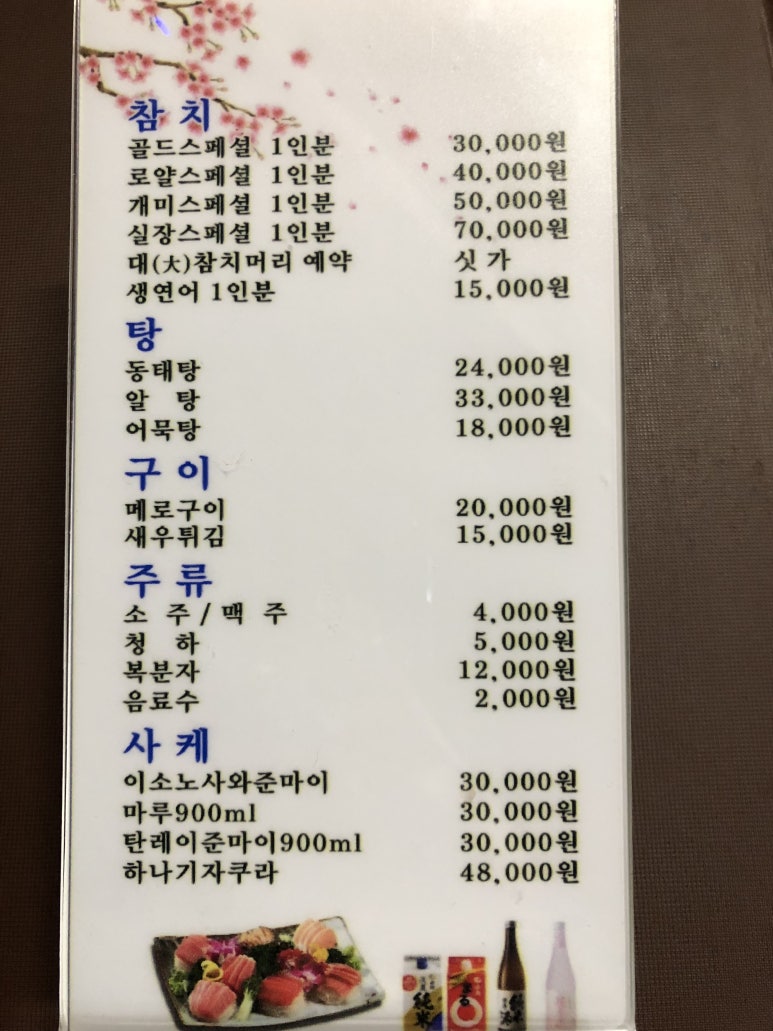 참 치
골드스페셜 1인분 30,000원
로얄스페셜 1인분 40,000원
개미스페셜 1인분 50,000원
실장스페셜 1인분 70,000원
대(大)참치머리 예약 싯 가
생연어 1인분 15,000원
탕
동태탕 24,000원
알 탕 33,000원
어묵탕 18,000원
구 이
메로구이 20,000원
새우튀김 15,000원
주 류
소 주 / 맥 주 4,000원
청 하 5,000원
복분자 12,000원
음료수 2,000원
사 케
이소노사와준마이 30,000원
마루900ml 30,000원
탄레이준마이900ml 30,000원
하나기자쿠라 48,000원
純米